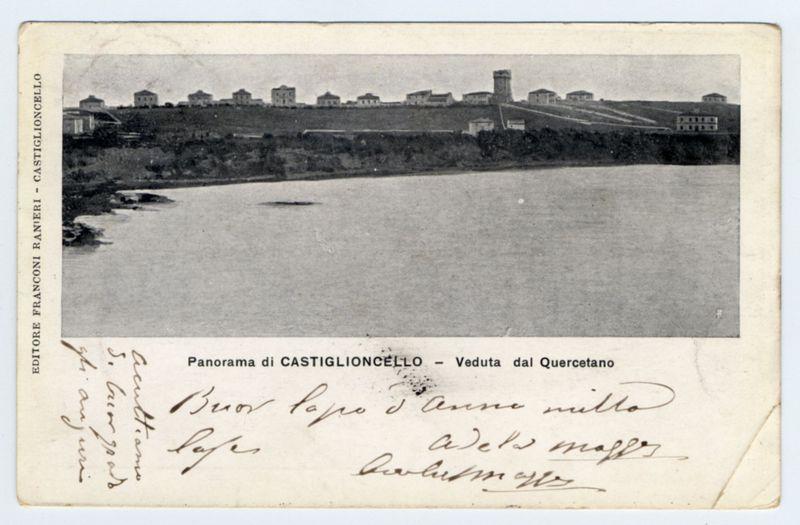 EDITORE FRANCONI RANIERI – CASTIGLIONCELLO
Panorama di CASTIGLIONCELLO – Veduta dal Quercetano
Buon Capo d'Anno mille
Adela Maggi
Maggi
di buon grado
gli auguri